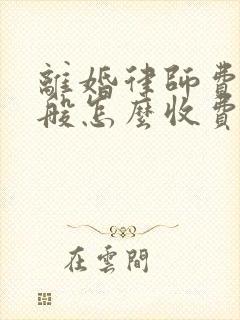 離婚律師費
般怎麼收費
在雲間